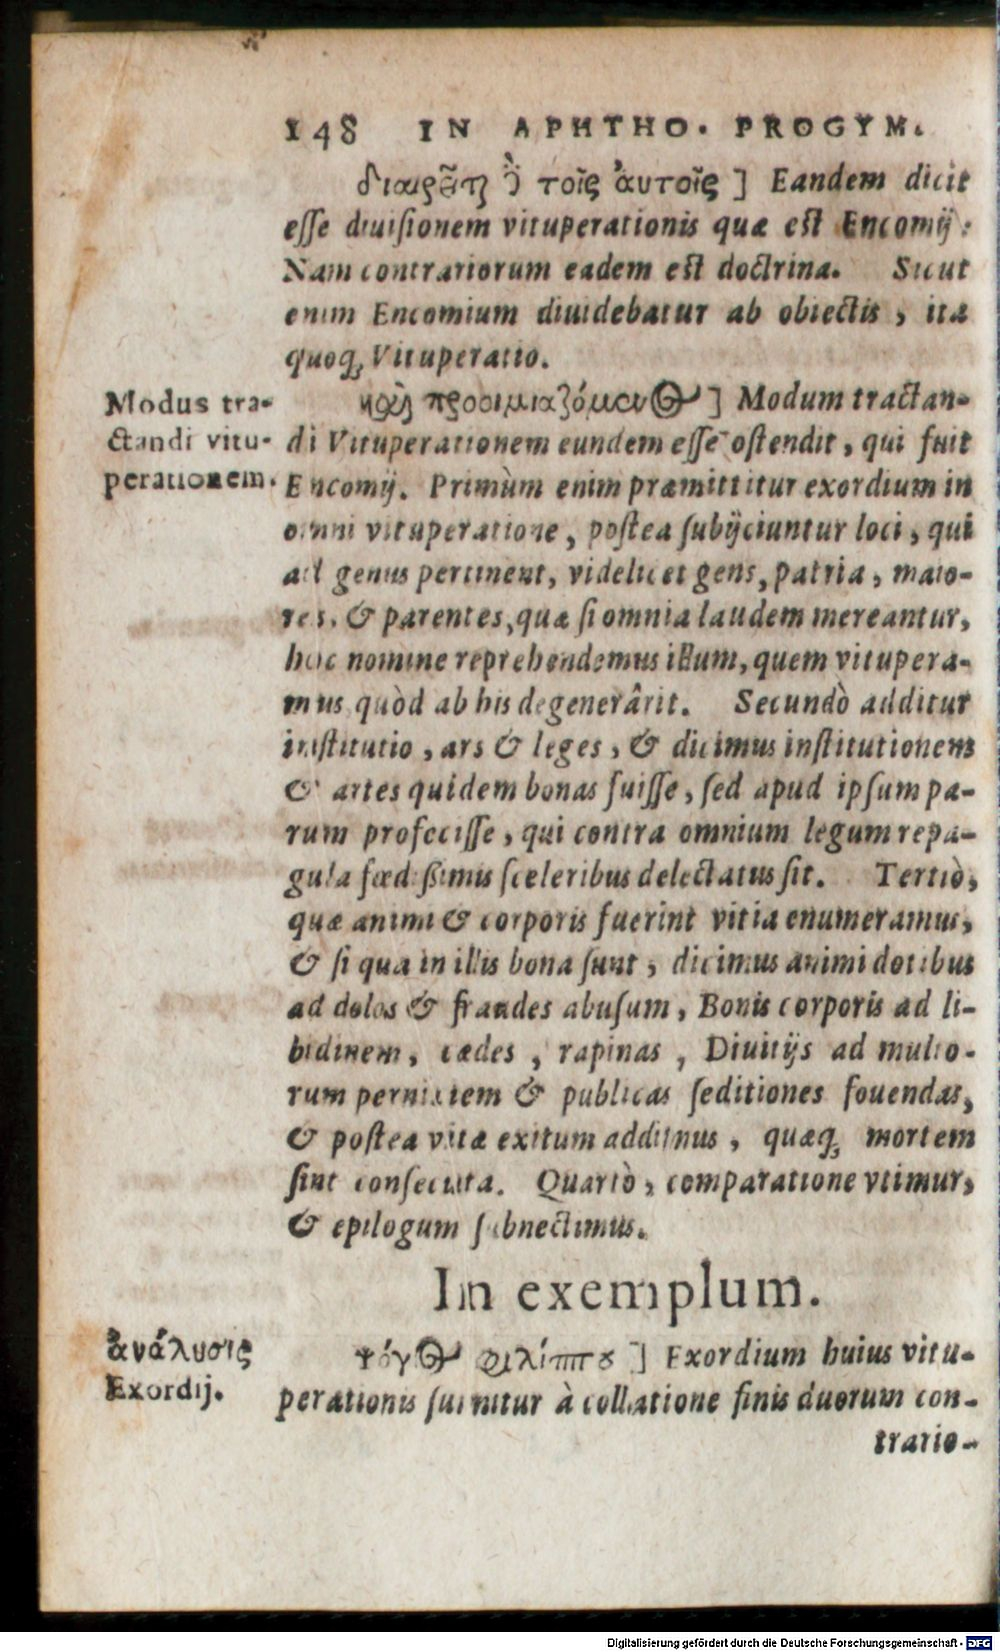 148 IN APHTHO. PROGYM.
διαιρεῖται δὲ τοῖς αὐτοῖς ] Eandem dicit
esse diuisionem vituperationis quæ est Encomij:
Nam contrariorum eadem est doctrina. Sicut
enim Encomium diuidebatur ab obiectis, ita
quoq; Vituperatio.
Modus tra-
ctandi vitu-
perationem.
καὶ προοιμιαζόμενος ] Modum tractan-
di Vituperationem eundem esse ostendit, qui fuit
Encomij. Primùm enim præmittitur exordium in
omni vituperatione, postea subijciuntur loci, qui
ad genus pertinent, videlicet gens, patria, maio-
res, & parentes, quæ si omnia laudem mereantur,
hoc nomine reprehendemus illum, quem vitupera-
mus quòd ab his degenerârit. Secundò additur
institutio, ars & leges, & dicimus institutionem
& artes quidem bonas fuisse, sed apud ipsum pa-
rum profecisse, qui contra omnium legum repa-
gula fœdissimis sceleribus delectatus sit. Tertiò,
quæ animi & corporis fuerint vitia enumeramus,
& si qua in illis bona sunt, dicimus animi dotibus
ad dolos & fraudes abusum, Bonis corporis ad li-
bidinem, cædes, rapinas, Diuitijs ad multo-
rum perniciem & publicas seditiones fouendas,
& postea vitæ exitum addimus, quæq; mortem
sint consecuta. Quartò, comparatione vtimur,
& epilogum subnectimus.
In exemplum.
ἀνάλυσις
Exordij.
ψόγος φιλίππου ] Exordium huius vitu-
perationis sumitur à collatione finis duorum con-
trario-
Digitalisierung gefördert durch die Deutsche Forschungsgemeinschaft - DFG